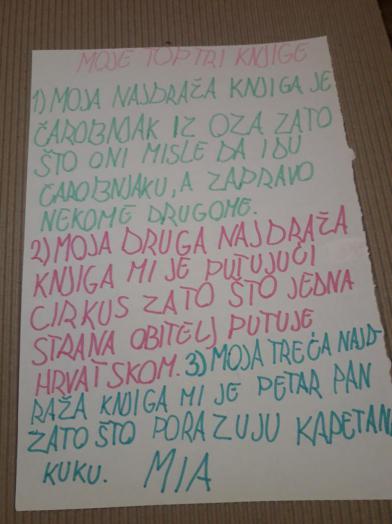 MOJE TOP TRI KNJIGE
1) MOJA NAJDRAŽA KNJIGA JE
ČAROBNJAK IZ OZA ZATO
ŠTO ONI MISLE DA IDU
ČAROBNJAKU, A ZAPRAVO
NEKOME DRUGOME.
2) MOJA DRUGA NAJDRAŽA
KNJIGA MI JE PUTUJUĆI
CIRKUS ZATO ŠTO JEDNA
STRANA OBITELJ PUTUJE
HRVATSKOM. 3) MOJA TREĆA NAJD-
RAŽA KNJIGA MI JE PETAR PAN
ZATO ŠTO PORAZUJU KAPETANA
KUKU. MIA